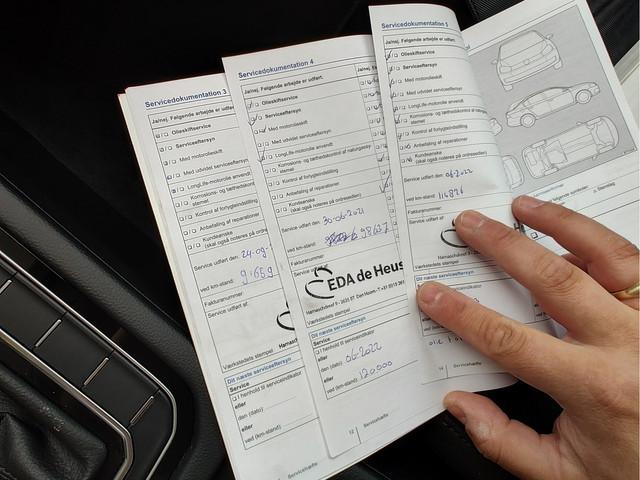 Servicedokumentation 3
Ja/nej. Følgende arbejde er udført:
Olieskiftservice
Serviceeftersyn
Med motorolieskift
Med udvidet serviceeftersyn
LongLife-motorolie anvendt
Kontrol af forlygteindstilling
Anbefaling af reparationer
Kundeønske
(skal også noteres på ordre
Service udført den: 24-09-
ved km-stand:
Fakturanummer:
Service udført af:
Værkstedets stempel
Dit næste serviceeftersyn
Service
I henhold til serviceindikator
eller
den (dato):
eller
ved (km-stand):
Servicehæfte
Servicedokumentation 4
Ja/nej. Følgende arbejde er udført:
Olieskiftservice
Serviceeftersyn
Med motorolieskift
Med udvidet serviceeftersyn
LongLife-motorolie anvendt
Kontrol af forlygteindstilling
Anbefaling af reparationer
Kundeønske
(skal også noteres på ordresedlen)
Service udført den: 30-06-2021
ved km-stand: 98627
Fakturanummer:
EDA de Heus
Værkstedets stempel
Dit næste serviceeftersyn
Service
I henhold til serviceindikator
eller
den (dato): 06.2022
eller
ved (km-stand): 120.000
12 Servicehæfte
Servicedokumentation 5
Ja/nej. Følgende arbejde er udført:
Olieskiftservice
Serviceeftersyn
Med motorolieskift
Med udvidet serviceeftersyn
LongLife-motorolie anvendt
Kontrol af forlygteindstilling
Anbefaling af reparationer
Kundeønske
(skal også noteres på ordresedlen)
Service udført den: 06-2022
ved km-stand:
Fakturanummer:
Service udført af:
Værkstedets stempel
Dit næste serviceeftersyn
14 Servicehæfte